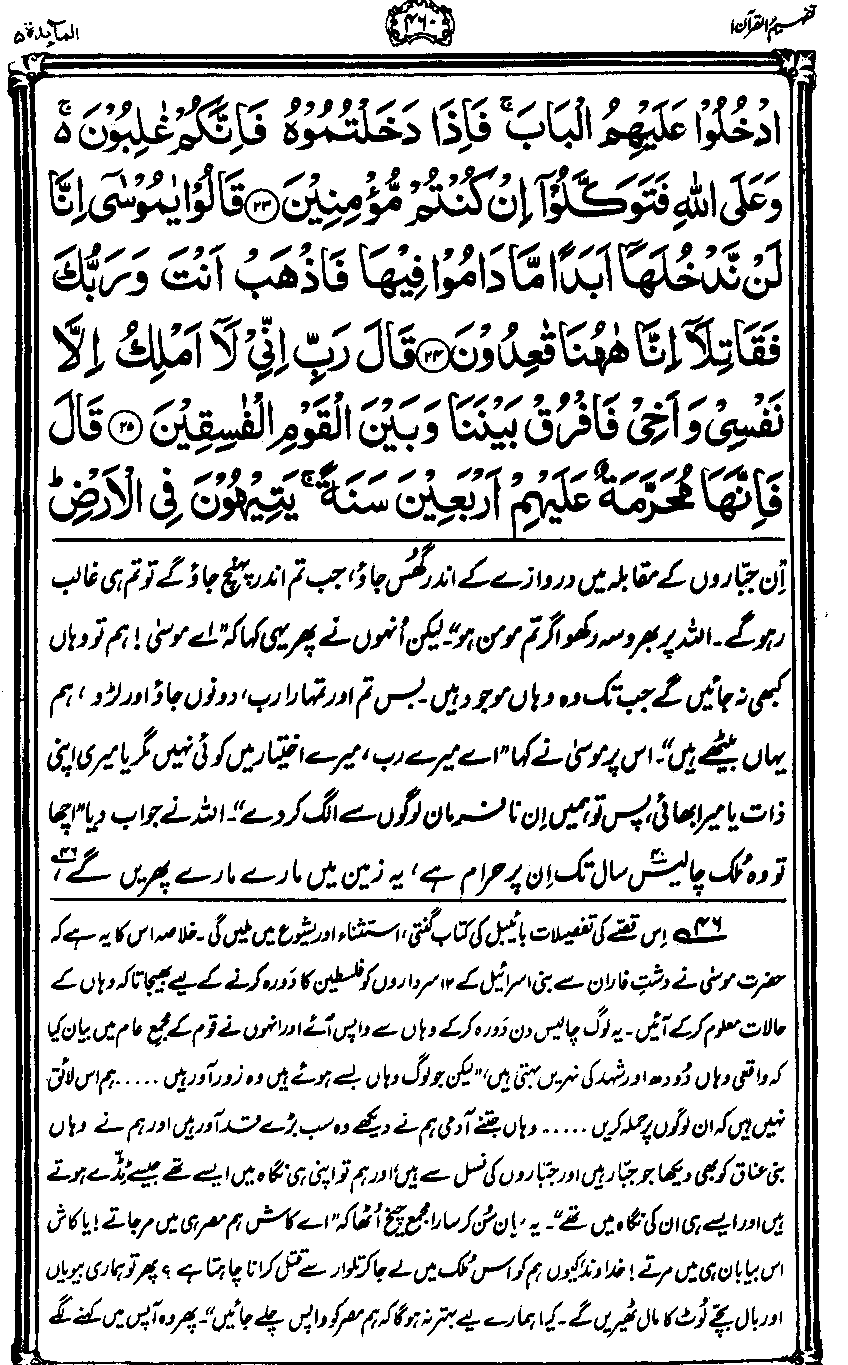 تفہیم القرآن ۱
۴۶۰
المآئدۃ ۵
ادْخُلُوْا عَلَيْهِمُ الْبَابَ ۚ فَاِذَا دَخَلْتُمُوْهُ فَاِنَّكُمْ غٰلِبُوْنَ ۚ۬
وَعَلَى اللّٰهِ فَتَوَكَّلُوْۤا اِنْ كُنْتُمْ مُّؤْمِنِيْنَ ﴿۲۳﴾ قَالُوْا يٰمُوْسٰۤى اِنَّا
لَنْ نَّدْخُلَهَاۤ اَبَدًا مَّا دَامُوْا فِيْهَا فَاذْهَبْ اَنْتَ وَرَبُّكَ
فَقَاتِلَاۤ اِنَّا هٰهُنَا قٰعِدُوْنَ ﴿۲۴﴾ قَالَ رَبِّ اِنِّيْ لَاۤ اَمْلِكُ اِلَّا
نَفْسِيْ وَاَخِيْ فَافْرُقْ بَيْنَنَا وَبَيْنَ الْقَوْمِ الْفٰسِقِيْنَ ﴿۲۵﴾ قَالَ
فَاِنَّهَا مُحَرَّمَةٌ عَلَيْهِمْ اَرْبَعِيْنَ سَنَةً ۚ يَتِيْهُوْنَ فِي الْاَرْضِ ؕ
اِن جبّاروں کے مقابلہ میں دروازے کے اندر گھُس جاؤ، جب تم اندر پہنچ جاؤ گے تو تم ہی غالب
رہو گے۔ اللہ پر بھروسہ رکھو اگر تم مومن ہو“۔ لیکن اُنہوں نے پھر یہی کہا کہ ”اے موسیٰ! ہم تو وہاں
کبھی نہ جائیں گے جب تک وہ وہاں موجود ہیں۔ بس تم اور تمہارا رب، دونوں جاؤ اور لڑو، ہم
یہاں بیٹھے ہیں“۔ اس پر موسیٰ نے کہا ”اے میرے رب، میرے اختیار میں کوئی نہیں مگر یا میری اپنی
ذات یا میرا بھائی، پس تو ہمیں اِن نافرمان لوگوں سے الگ کر دے“۔ اللہ نے جواب دیا ”اچھا
تو وہ مُلک چالیس سال تک اِن پر حرام ہے، یہ زمین میں مارے مارے پھریں گے،۴۶
۴۶ اِس قصّے کی تفصیلات بائیبل کی کتاب گنتی، استثناء اور یشوع میں ملیں گی۔ خلاصہ اس کا یہ ہے کہ
حضرت موسیٰ نے دشتِ فاران سے بنی اسرائیل کے ۱۲ سرداروں کو فلسطین کا دَورہ کرنے کے لیے بھیجا تاکہ وہاں کے
حالات معلوم کر کے آئیں۔ یہ لوگ چالیس دن دَورہ کر کے وہاں سے واپس آئے اور انہوں نے قوم کے مجمع عام میں بیان کیا
کہ واقعی وہاں دُودھ اور شہد کی نہریں بہتی ہیں، ”لیکن جو لوگ وہاں بسے ہوئے ہیں وہ زور آور ہیں ..... ہم اس لائق
نہیں ہیں کہ ان لوگوں پر حملہ کریں ..... وہاں جتنے آدمی ہم نے دیکھے وہ سب بڑے قد آور ہیں اور ہم نے وہاں
بنی عناق کو بھی دیکھا جو جبّار ہیں اور جبّاروں کی نسل سے ہیں، اور ہم تو اپنی ہی نگاہ میں ایسے تھے جیسے ٹِڈّے ہوتے
ہیں اور ایسے ہی ان کی نگاہ میں تھے“۔ یہ بیان سُن کر سارا مجمع چیخ اُٹھا کہ ”اے کاش ہم مصر ہی میں مر جاتے! یا کاش
اس بیابان ہی میں مرتے! خداوند کیوں ہم کو اُس مُلک میں لے جا کر تلوار سے قتل کرانا چاہتا ہے؟ پھر تو ہماری بیویاں
اور بال بچّے لُوٹ کا مال ٹھیریں گے۔ کیا ہمارے لیے بہتر نہ ہوگا کہ ہم مصر کو واپس چلے جائیں“۔ پھر وہ آپس میں کہنے لگے